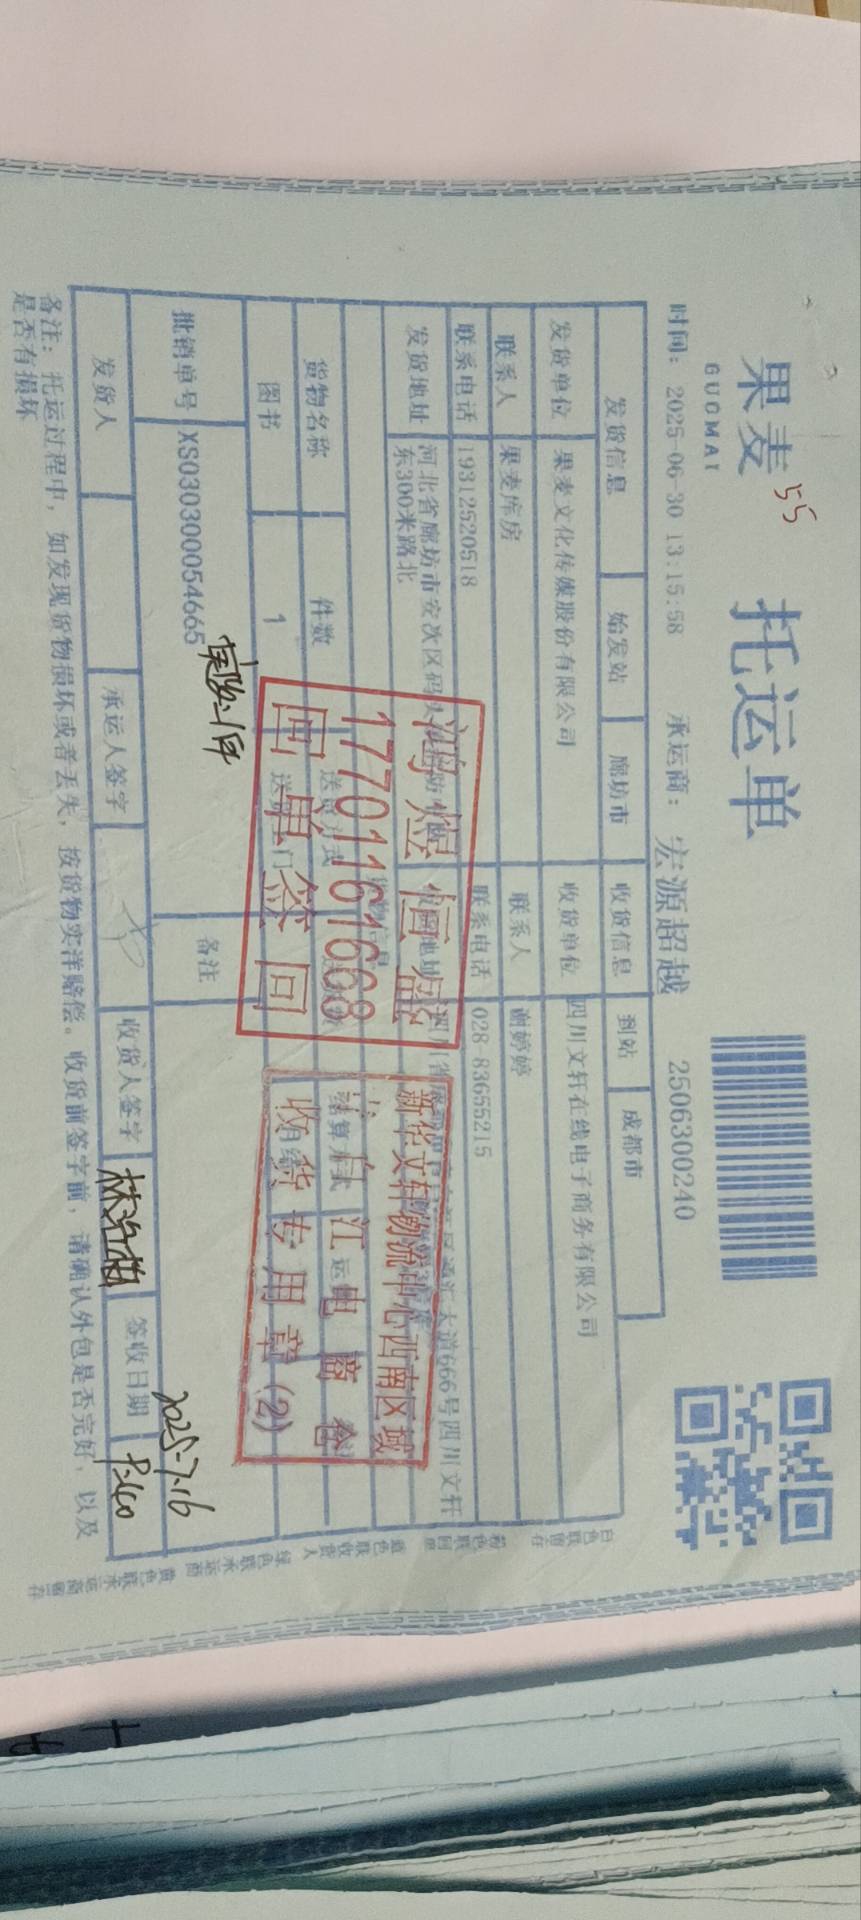 果麦
GUOMAI
55
托运单
时间: 2025-06-30 13:15:58 承运商: 宏源超越 2506300240
发货信息 始发站 廊坊市 收货信息 到站 成都市
发货单位 果麦文化传媒股份有限公司 收货单位 四川文轩在线电子商务有限公司
联系人 果麦库房 联系人 谢婷婷
联系电话 19312520518 联系电话 028-83655215
发货地址 河北省廊坊市安次区码头
东300米路北
大道666号四川文轩
货物名称 件数 送货方式 结算方式
图书 1
鸿煜恒盛
17701161668
回单签回
新华文轩物流中心西南区域
青白江电商仓
收货专用章(2)
批销单号 XS0303000054665 备注
实收1件
发货人 承运人签字 收货人签字 签收日期
2025-7-16
备注: 托运过程中, 如发现货物损坏或者丢失, 按货物实洋赔偿。收货前签字前, 请确认外包是否完好, 以及
是否有损坏
白色联留存 粉色联回单 蓝色联收货人 绿色联承运商 黄色联承运商留存